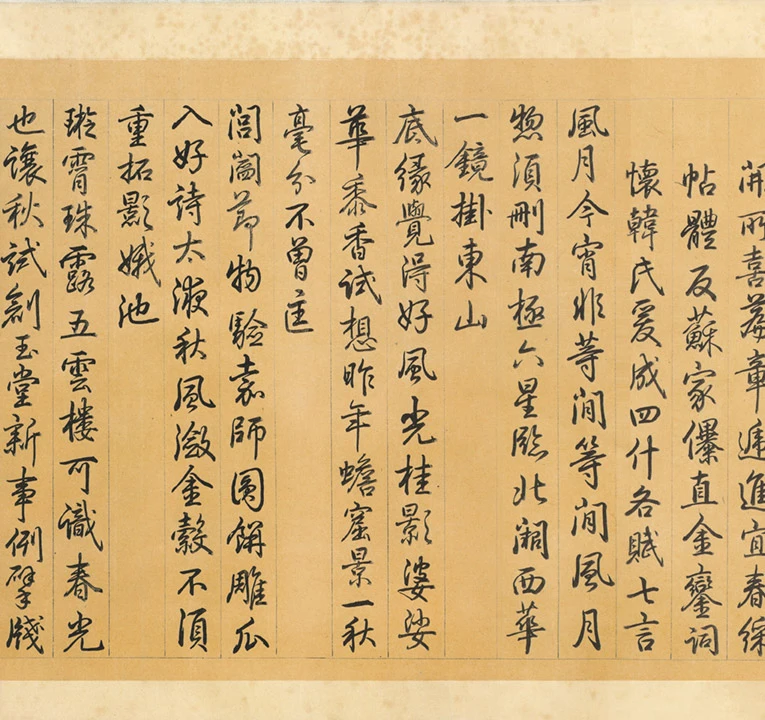 開所喜篇章遞進宜春綵
帖體反蘇家儤直金鑾詞
懷韓氏爰成四什各賦七言
風月今宵非等閒等閒風月
惣須刪南極六星臨北闕西華
一鏡掛東山
底緣覺得好風光桂影婆娑
華黍香試想昨年蟾窟景一秋
毫分不曾匡
閶闔節物驗嘉師圓餅雕瓜
入好詩太液秋風瀲金縠不須
重拓影娥池
璇霄珠露五雲樓可識春光
也讓秋試創玉堂新事例擘牋